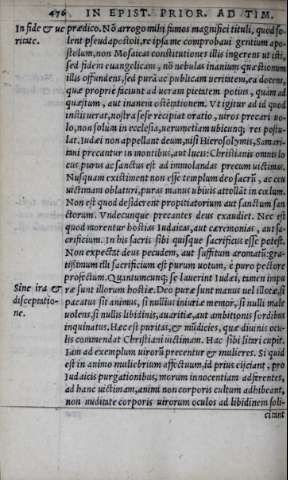 476 IN EPIST. PRIOR. AD TIM.
In fide & ue
ritate.
prædico. Nō arrogo mihi fumos magnifici tituli, quod so-
lent pseudapostoli, re ipsa me comprobaui gentium apo-
stolum, non Mosaicas constitutiones illis ingerens ut isti,
sed fidem euangelicam, nō nebulas inanium quæstionum
illis offundens, sed purā ac publicam ueritatem, ea docens,
quæ propriè faciunt ad ueram pietatem potius, quàm ad
quæstum, aut inanem ostētationem. Vt igitur ad id quod
institueram, nostra sese recipiat oratio, uiros precari uo-
lo, non solùm in ecclesia, uerumetiam ubicunq; res postu-
lat. Iudæi non appellant deum, nisi Hierosolymis, Samari-
tani precantur in montibus, aut lucis: Christianis omnis lo
cus purus ac sanctus est ad immolandas precum uictimas.
Nusquam existiment non esse templum deo sacrū, ac ceu
uictimam oblaturi, puras manus ubiuis attollāt in cælum.
Non est quod desyderent propitiatorium aut sanctum san
ctorum. Vndecunque precantes deus exaudiet. Nec est
quod morentur hostias Iudaicas, aut cæremonias, aut sa-
crificium. In his sacris sibi quisque sacrificus esse potest.
Non expectat deus pecudem, aut suffitum aromatū: gra-
tissimum illi sacrificium est purum uotum, è puro pectore
profectum. Quantumcunq; se lauerint Iudæi, tamen impu
Sine ira &
disceptatio-
ne.
ræ sunt illorum hostiæ. Deo puræ sunt manus uel illotæ, si
pacatus sit animus, si nullius iniuriæ memor, si nulli malè
uolens, si nullis libidinis, auaritiæ, aut ambitionis sordibus
inquinatus. Hæc est puritas, & mūdicies, quæ diuinis ocu-
lis commendat Christiani uictimam. Hac sibi litari cupit.
Iam ad exemplum uirorū precentur & mulieres. Si quid
est in animo muliebrium affectuum, id prius eijciant, pro
Iudaicis purgationibus, morum innocentiam adferentes,
ad hanc uictimam, animi non corporis cultum adhibeant,
non nuditate corporis uirorum oculos ad libidinem soli-
citent